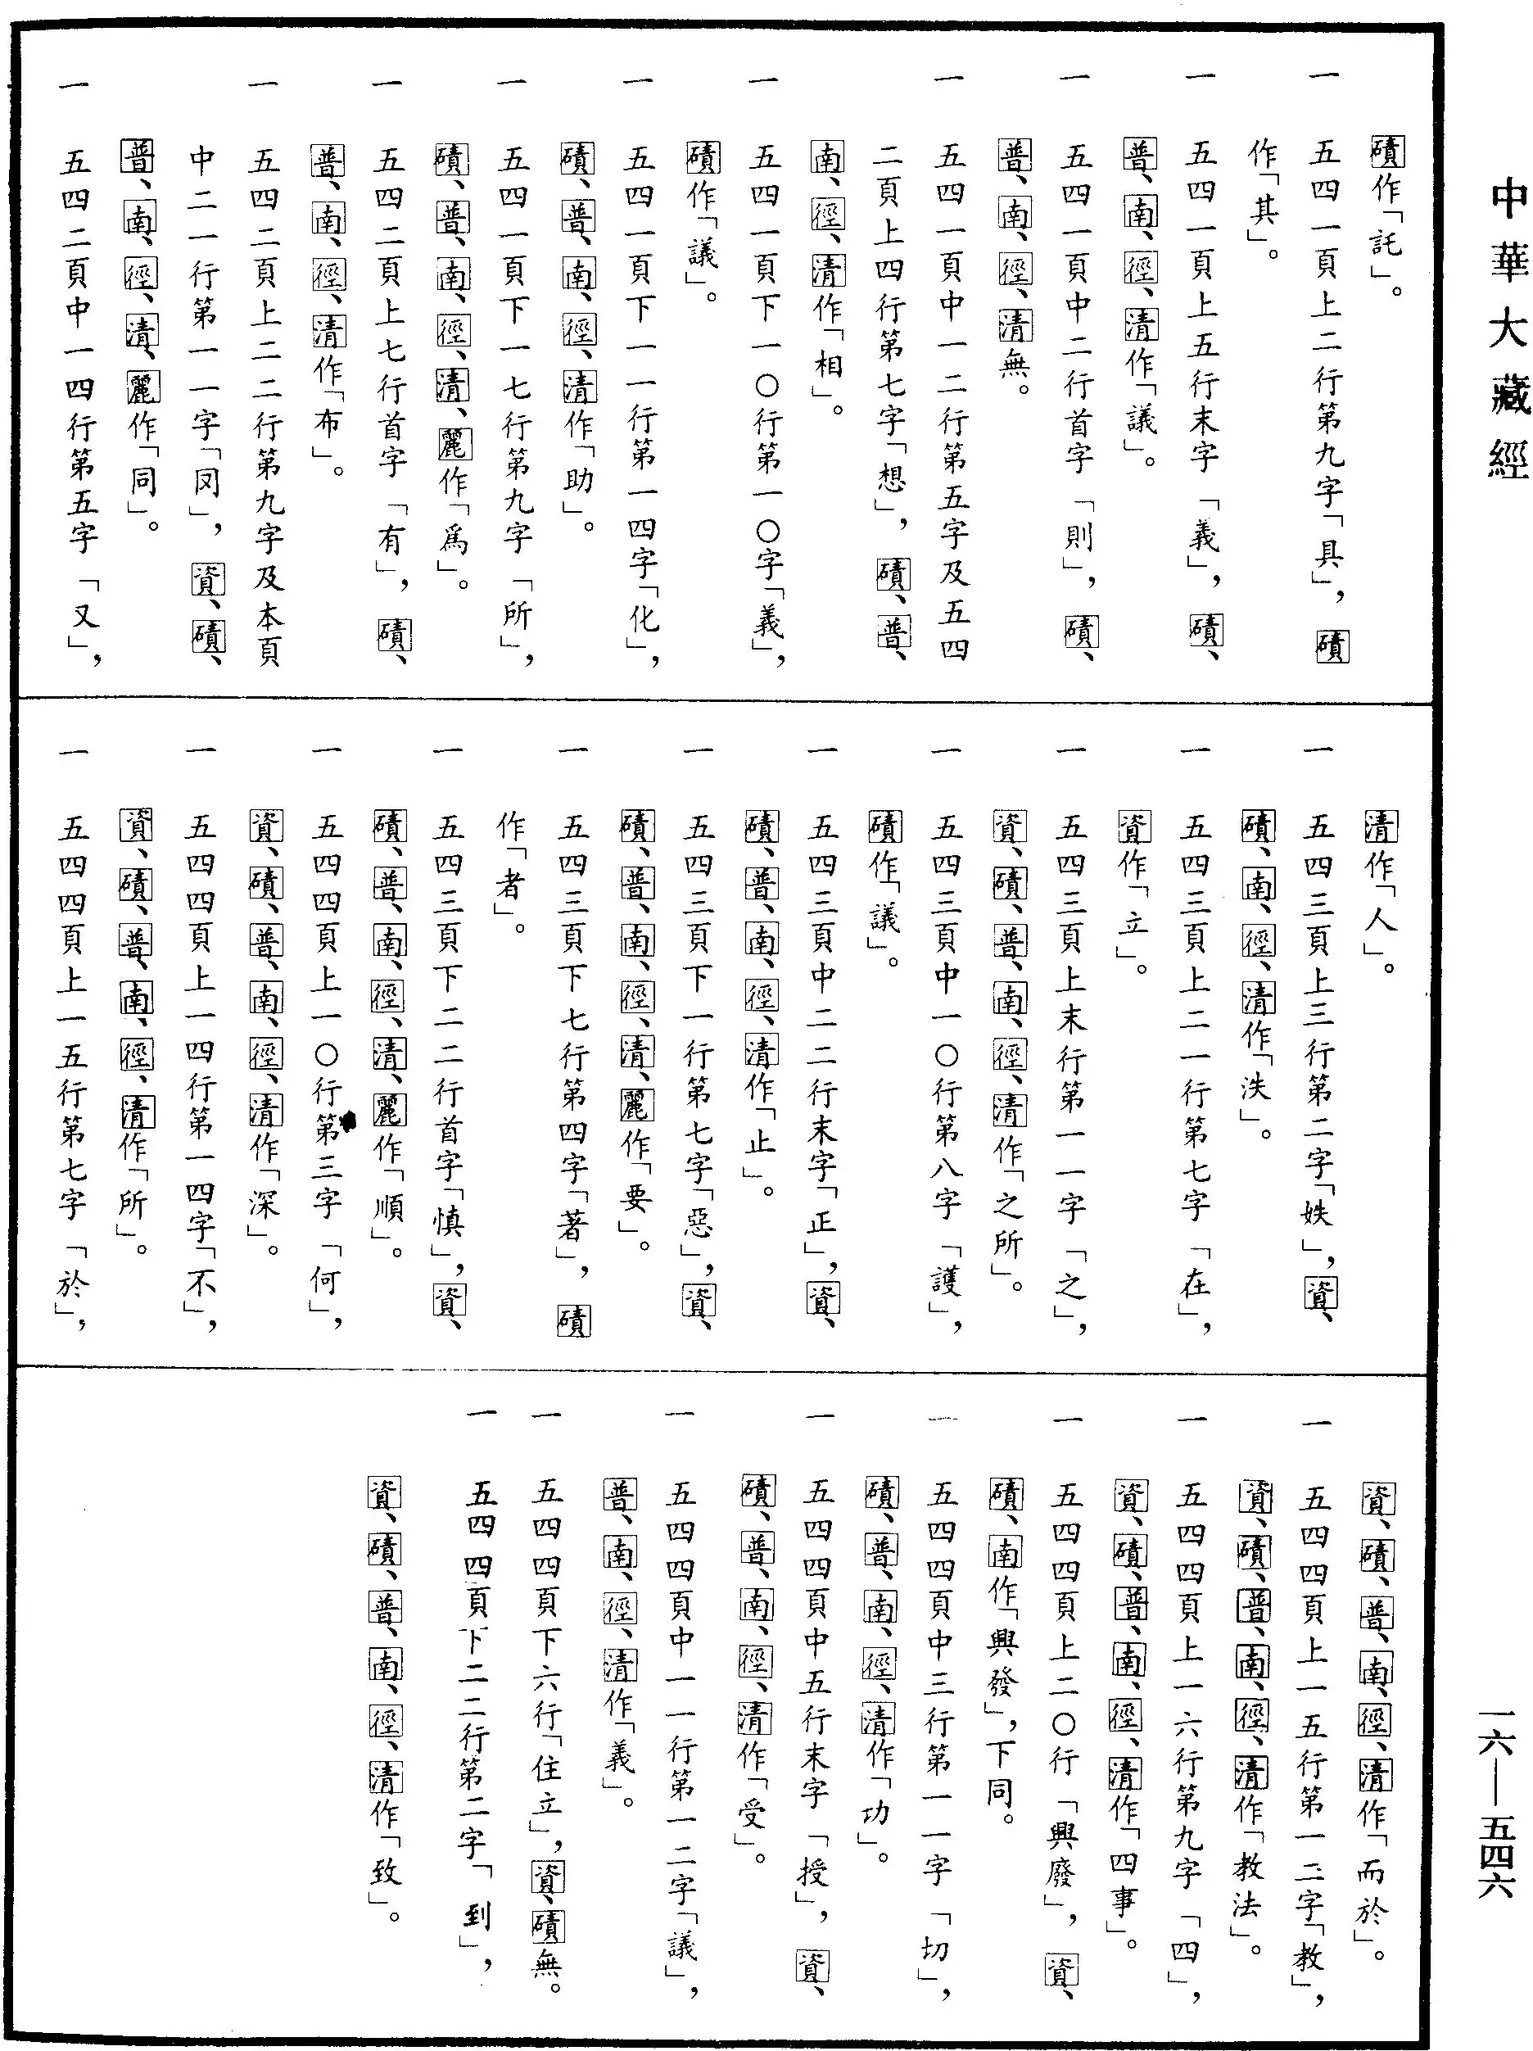 中華大藏經
磧作「託」。
一 五四一頁上二行第九字「具」，磧
作「其」。
一 五四一頁上五行末字「義」，磧、
普、南、徑、清作「議」。
一 五四一頁中二行首字「則」，磧、
普、南、徑、清無。
一 五四一頁中一二行第五字及五四
二頁上四行第七字「想」，磧、普、
南、徑、清作「相」。
一 五四一頁下一〇行第一〇字「義」，
磧作「議」。
一 五四一頁下一一行第一四字「化」，
磧、普、南、徑、清作「助」。
一 五四一頁下一七行第九字「所」，
磧、普、南、徑、清、麗作「爲」。
一 五四二頁上七行首字「有」，磧、
普、南、徑、清作「布」。
一 五四二頁上二二行第九字及本頁
中二一行第一一字「囘」，資、磧、
普、南、徑、清、麗作「同」。
一 五四二頁中一四行第五字「又」，
清作「人」。
一 五四三頁上三行第二字「妷」，資、
磧、南、徑、清作「泆」。
一 五四三頁上二一行第七字「在」，
資作「立」。
一 五四三頁上末行第一一字「之」，
資、磧、普、南、徑、清作「之所」。
一 五四三頁中一〇行第八字「護」，
磧作「議」。
一 五四三頁中二二行末字「正」，資、
磧、普、南、徑、清作「止」。
一 五四三頁下一行第七字「惡」，資、
磧、普、南、徑、清、麗作「要」。
一 五四三頁下七行第四字「著」，磧
作「者」。
一 五四三頁下二二行首字「慎」，資、
磧、普、南、徑、清、麗作「順」。
一 五四四頁上一〇行第三字「何」，
資、磧、普、南、徑、清作「深」。
一 五四四頁上一四行第一四字「不」，
資、磧、普、南、徑、清作「所」。
一 五四四頁上一五行第七字「於」，
資、磧、普、南、徑、清作「而於」。
一 五四四頁上一五行第一二字「教」，
資、磧、普、南、徑、清作「教法」。
一 五四四頁上一六行第九字「四」，
資、磧、普、南、徑、清作「四事」。
一 五四四頁上二〇行「興廢」，資、
磧、南作「興發」，下同。
一 五四四頁中三行第一一字「切」，
磧、普、南、徑、清作「功」。
一 五四四頁中五行末字「授」，資、
磧、普、南、徑、清作「受」。
一 五四四頁中一一行第一二字「議」，
普、南、徑、清作「義」。
一 五四四頁下六行「住立」，資、磧無。
一 五四四頁下二二行第二字「到」，
資、磧、普、南、徑、清作「致」。
一六—五四六